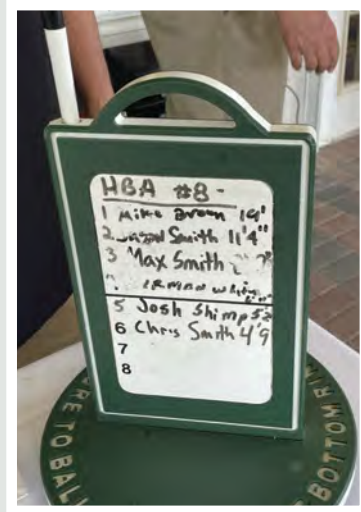 HBA #8-
1 Mike Brown 19'
2 Jason Smith 11'4"
3 Max Smith
5 Josh Shimp
6 Chris Smith 4'9
7
8
RE TO BAL
BOTTOM RIN